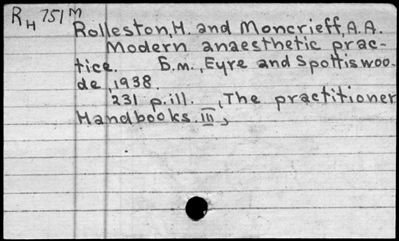 RH 751M
Rolleston, H. and Moncrieff, A.A.
Modern anaesthetic prac-
tice. Б.m., Eyre and Spottiswoo-
de, 1938.
231 p. ill. , The practitioner
Handbooks. III,